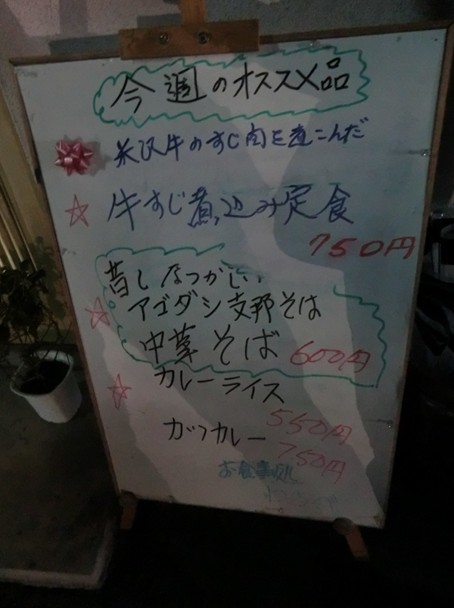 今週のオススメ品
米沢牛のすじ肉を煮こんだ
牛すじ煮込み定食
750円
昔しなつかしい
アゴダシ支那そば
中華そば 600円
カレーライス
550円
カツカレー 750円
お食事処